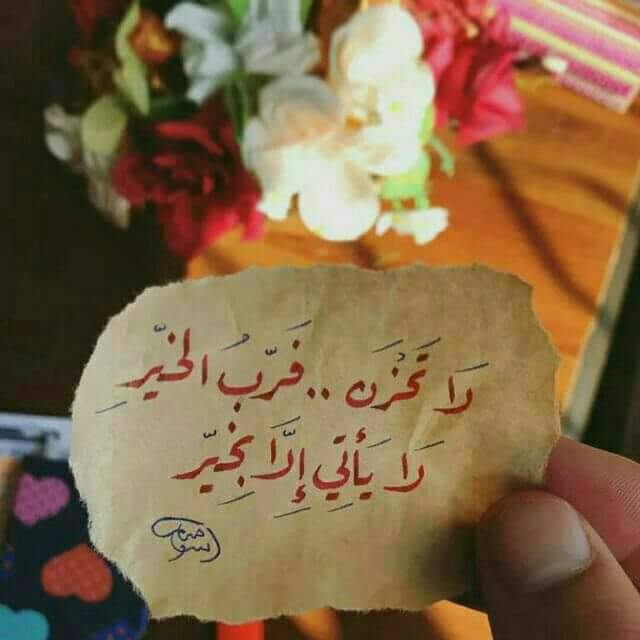 لَا تَحْزَن .. فَرَبُّ الخَيّرِ
لَا يَأتِي إِلَّا بِخَيّرِ